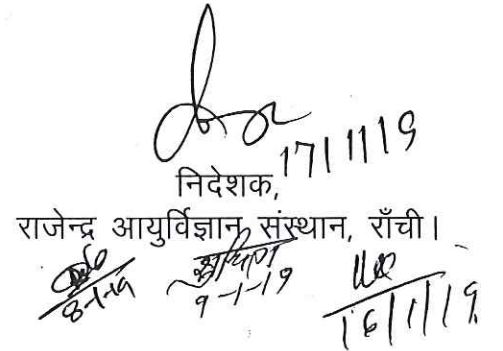 17/1/19
निदेशक,
राजेन्द्र आयुर्विज्ञान संस्थान, राँची।
8-1-19 9-1-19 16/1/19